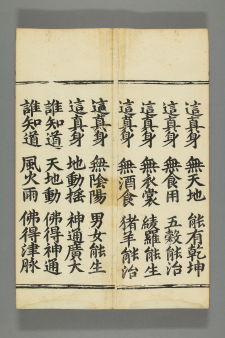 這真身 無天地 能有乾坤
這真身 無食用 五穀能治
這真身 無衣裳 綾羅能生
這真身 無酒食 猪羊能治
這真身 無陰陽 男女能生
這真身 地動摇 神通廣大
誰知道 天地動 佛得神通
誰知道 風火雨 佛得津脉